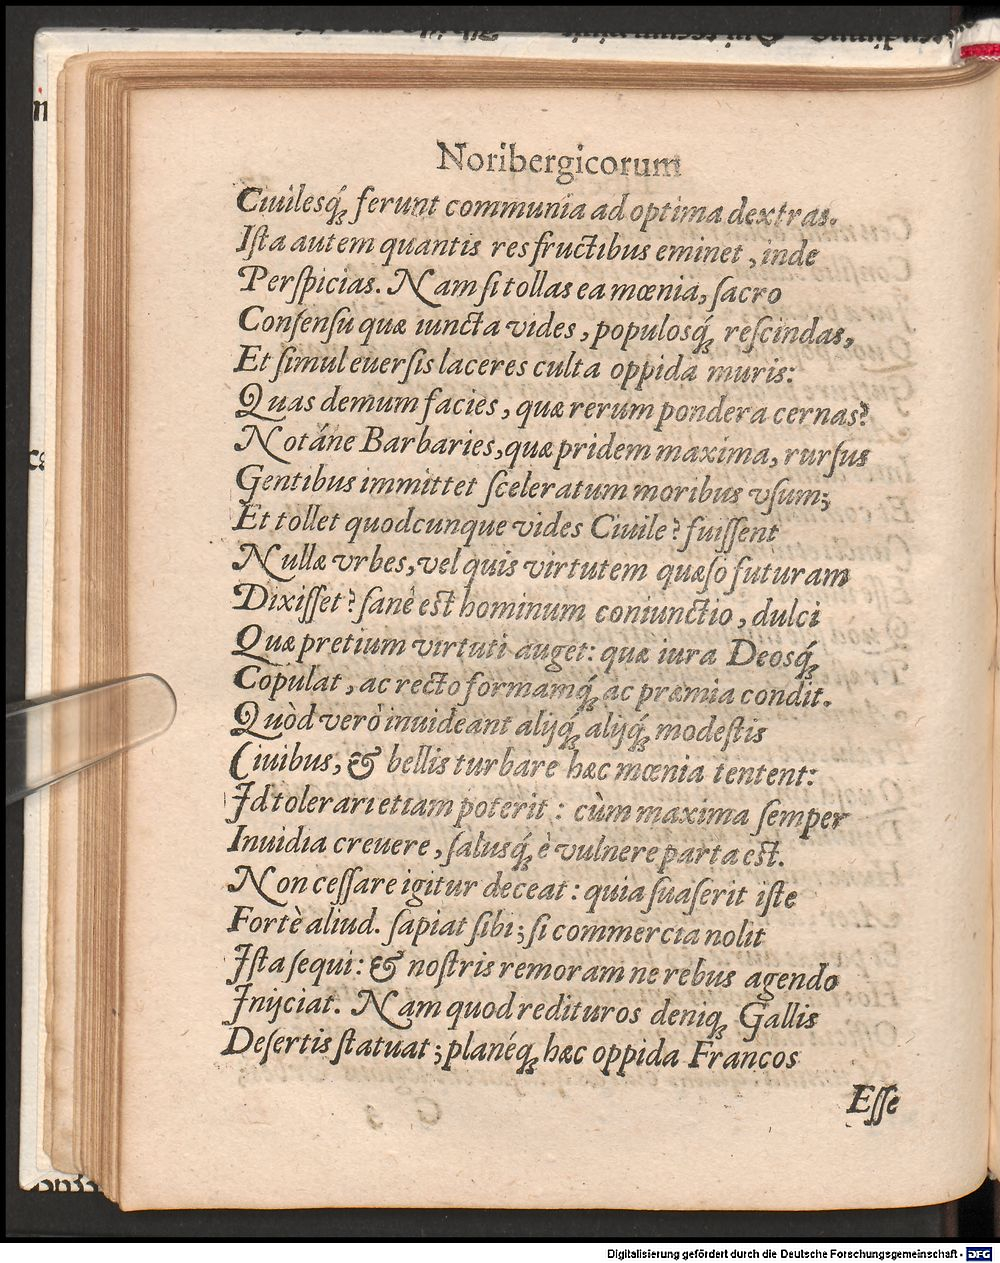 Noribergicorum
Ciuilesq́ꝫ ferunt communia ad optima dextras.
Iſta autem quantis res fructibus eminet, inde
Perſpicias. Nam ſi tollas ea mœnia, ſacro
Conſenſu quæ iuncta vides, populosq́ꝫ reſcindas,
Et ſimul euerſis laceres culta oppida muris:
Quas demum facies, quæ rerum pondera cernas?
Notáne Barbaries, quæ pridem maxima, rurſus
Gentibus immittet ſceleratum moribus vſum;
Et tollet quodcunque vides Ciuile? fuiſſent
Nullæ vrbes, vel quis virtutem quæſo futuram
Dixiſſet? ſanè eſt hominum coniunctio, dulci
Quæ pretium virtuti auget: quæ iura Deosq́ꝫ
Copulat, ac recto formamq́ꝫ ac præmia condit.
Quòd verò inuideant alijq́ꝫ alijq́ꝫ modeſtis
Ciuibus, & bellis turbare hæc mœnia tentent:
Id tolerari etiam poterit: cùm maxima ſemper
Inuidia creuere, ſalusq́ꝫ è vulnere parta eſt.
Non ceſſare igitur deceat: quia ſuaſerit iſte
Fortè aliud. ſapiat ſibi; ſi commercia nolit
Iſta ſequi: & noſtris remoram ne rebus agendo
Inijciat. Nam quod redituros deniqꝫ Gallis
Deſertis ſtatuat; planéqꝫ hæc oppida Francos
Eſſe
Digitalisierung gefördert durch die Deutsche Forschungsgemeinschaft - DFG